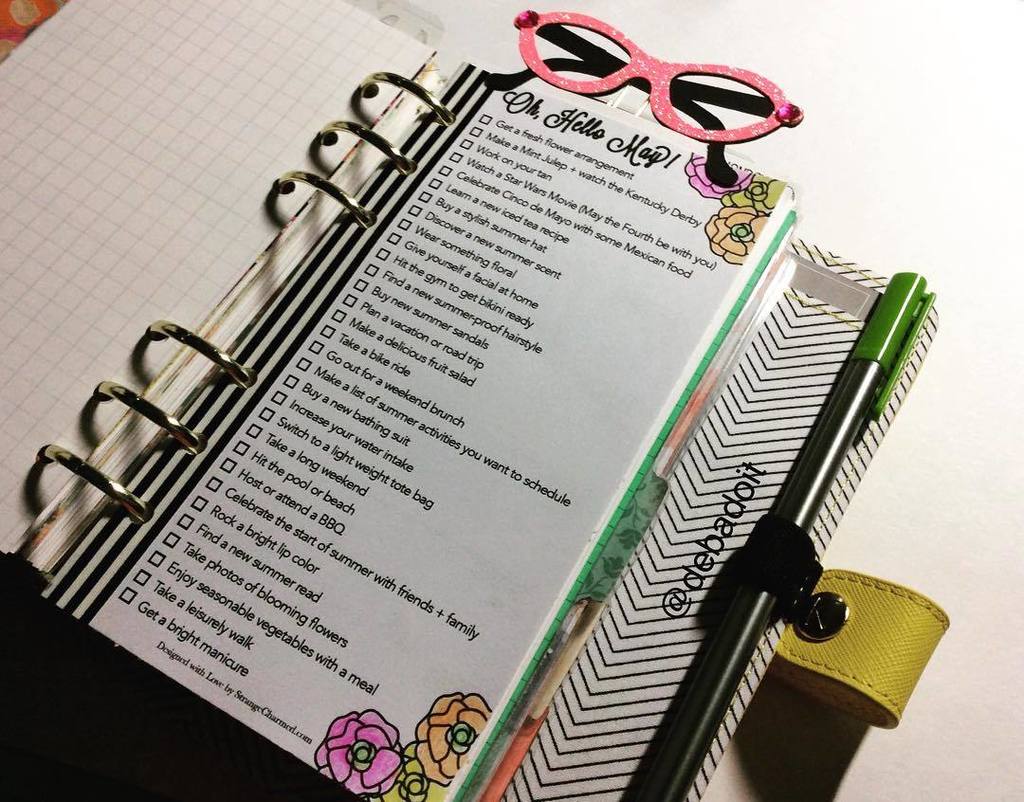 Oh, Hello May!
Get a fresh flower arrangement
Make a Mint Julep + watch the Kentucky Derby
Work on your tan
Watch a Star Wars Movie (May the Fourth be with you)
Celebrate Cinco de Mayo with some Mexican food
Learn a new iced tea recipe
Buy a stylish summer hat
Discover a new summer scent
Wear something floral
Give yourself a facial at home
Hit the gym to get bikini ready
Find a new summer-proof hairstyle
Buy new summer sandals
Plan a vacation or road trip
Make a delicious fruit salad
Take a bike ride
Go out for a weekend brunch
Make a list of summer activities you want to schedule
Buy a new bathing suit
Increase your water intake
Switch to a light weight tote bag
Take a long weekend
Hit the pool or beach
Host or attend a BBQ
Celebrate the start of summer with friends + family
Rock a bright lip color
Find a new summer read
Take photos of blooming flowers
Enjoy seasonable vegetables with a meal
Take a leisurely walk
Get a bright manicure
Designed with Love by StrangeCharmed.com
@debadoit